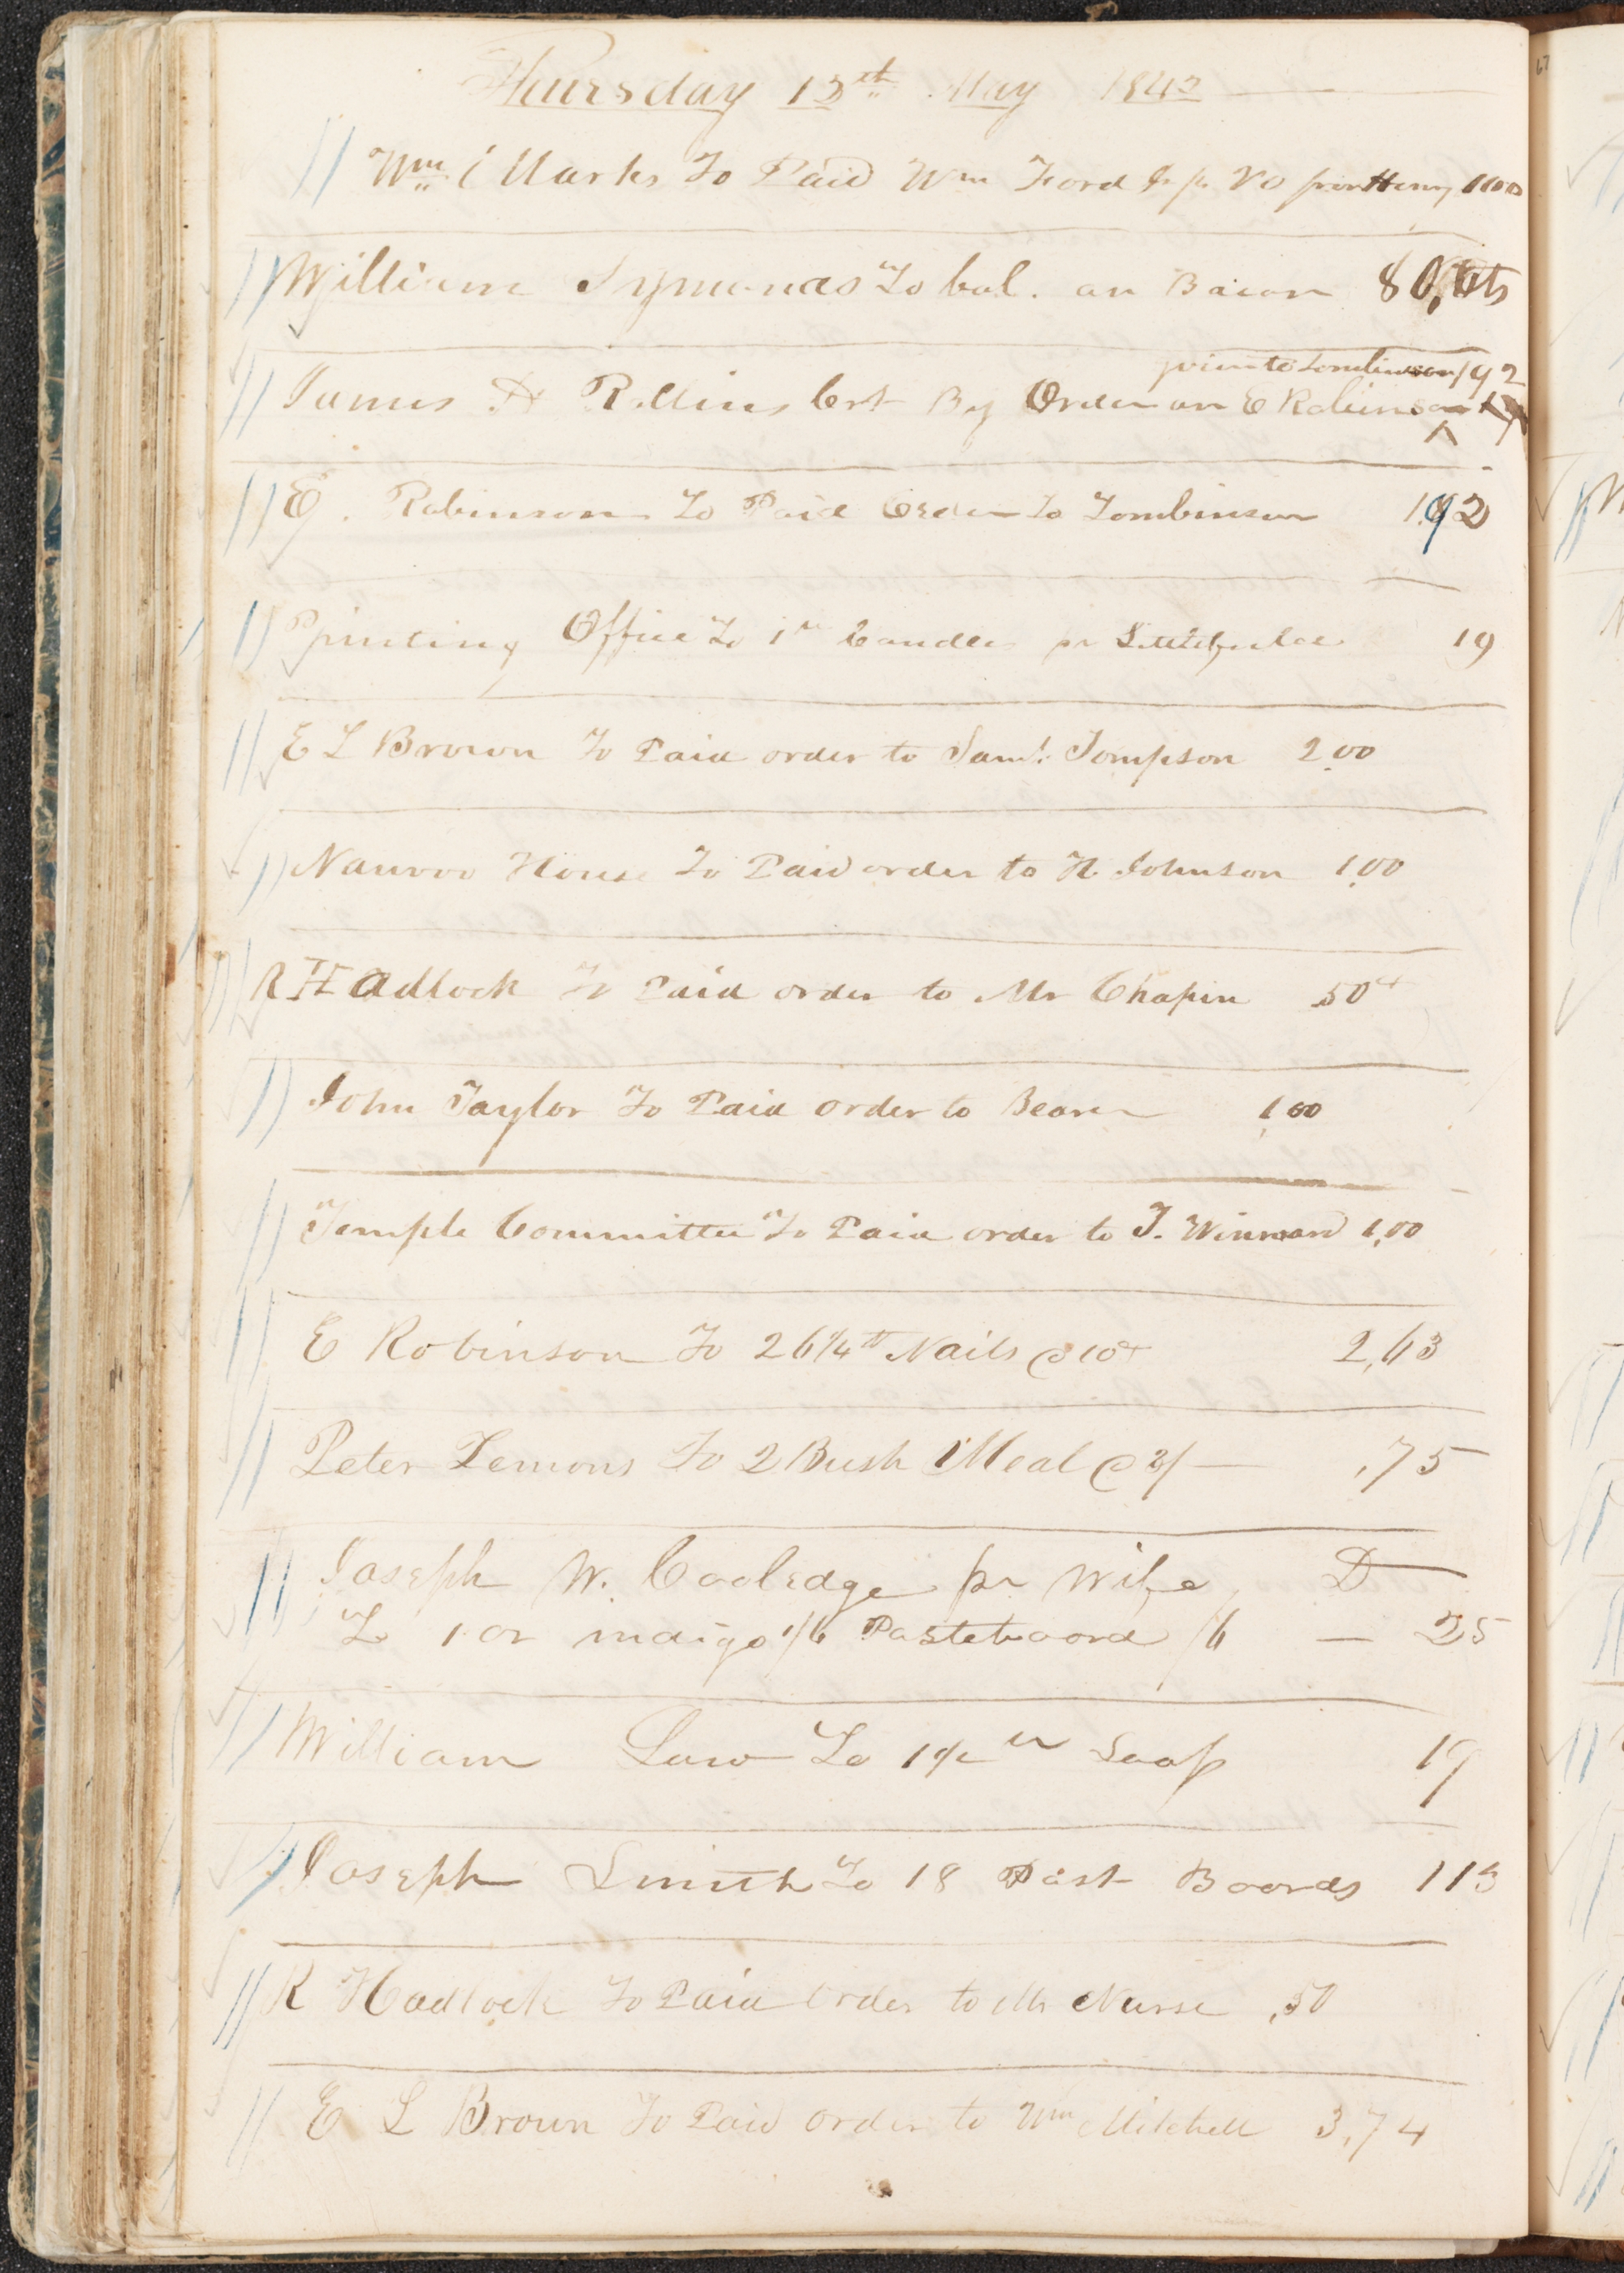 Thursday 13th May 1842
Wm Marks To Paid Wm Ford 1.00
William Symonds To bal. on Bacon 80 cts
given to Tomlinson 1 92
James H Rollins Crt By Order on E Robinson
E. Robinson To Paid Order To Tomlinson 1.92
Printing Office To 1 lb Candles pr 19
E L Brown To Paid order to Saml. Tompson 2.00
Nauvoo House To Paid order to H. Johnson 1.00
R Hadlock To Paid order to Mr Chapin .50 ct
John Taylor To Paid order to Bearer 1,00
Temple Committee To Paid order to T. Winward 1,00
E Robinson To 26 1/4 lb Nails @ 10 ct 2,63
Peter Lemons To 2 Bush Meal @ 3/ ,75
Joseph W. Cooledge pr Wife D
To 1 oz indigo 1/6 Pasteboard /6 — 25
William Law To 1 1/2 lb Soap 19
Joseph Smith To 18 Past Boords 113
R Hadlock To Paid Order to Mr Nurse ,50
E L Brown To Paid order to Wm Mitchell 3,74